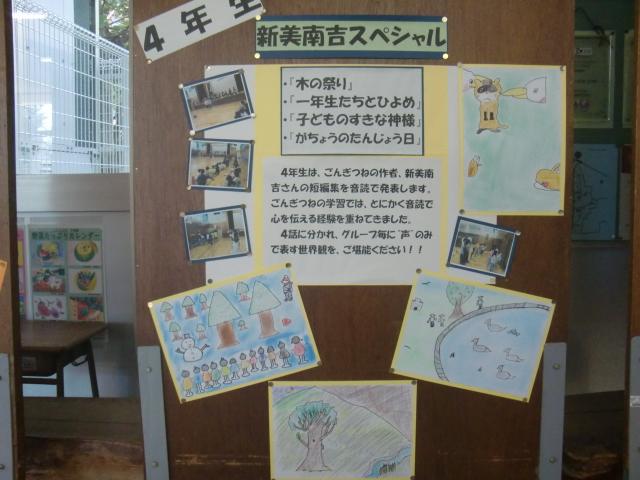 4年生
新美南吉スペシャル
・『木の祭り』
・『一年生たちとひよめ』
・『子どものすきな神様』
・『がちょうのたんじょう日』
4年生は、ごんぎつねの作者、新美南
吉さんの短編集を音読で発表します。
ごんぎつねの学習では、とにかく音読で
心を伝える経験を重ねてきました。
4話に分かれ、グループ毎に“声”のみ
で表す世界観を、ご堪能ください！！
野菜たっぷりカレンダー